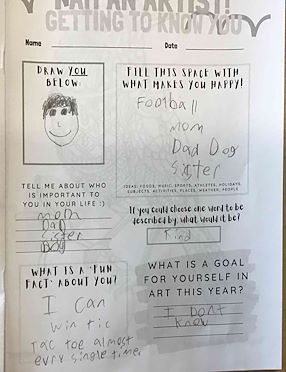 NAH I'M AN ARTIST!
GETTING TO KNOW YOU
Name
Date
DRAW YOU
BELOW:
FILL THIS SPACE WITH
WHAT MAKES YOU HAPPY!
Football
mom
Dad Dog
Sister
IDEAS: FOODS, MUSIC, SPORTS, ATHLETES, HOLIDAYS,
SUBJECTS, ACTIVITIES, PLACES, WEATHER, PEOPLE
TELL ME ABOUT WHO
IS IMPORTANT TO
YOU IN YOUR LIFE :)
mom
Dad
Sister
Dog
If you could choose one word to be
described by, what would it be?
Kind
WHAT IS A "FUN
FACT" ABOUT YOU?
I can
win tic
tac toe almost
evry single time
WHAT IS A GOAL
FOR YOURSELF IN
ART THIS YEAR?
I Dont
know